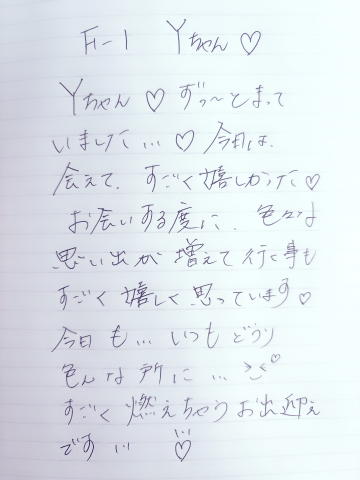 F-1 Yちゃん♡
Yちゃん♡ ずっ〜とまって
いました…♡ 今日は、
会えて、すごく嬉しかった♡
お会いする度に、色々な
思い出が増えて行く事も
すごく嬉しく思っています♡
今日も…いつもどうり
色んな所に…
すごく燃えちゃうお出迎え
です…♡